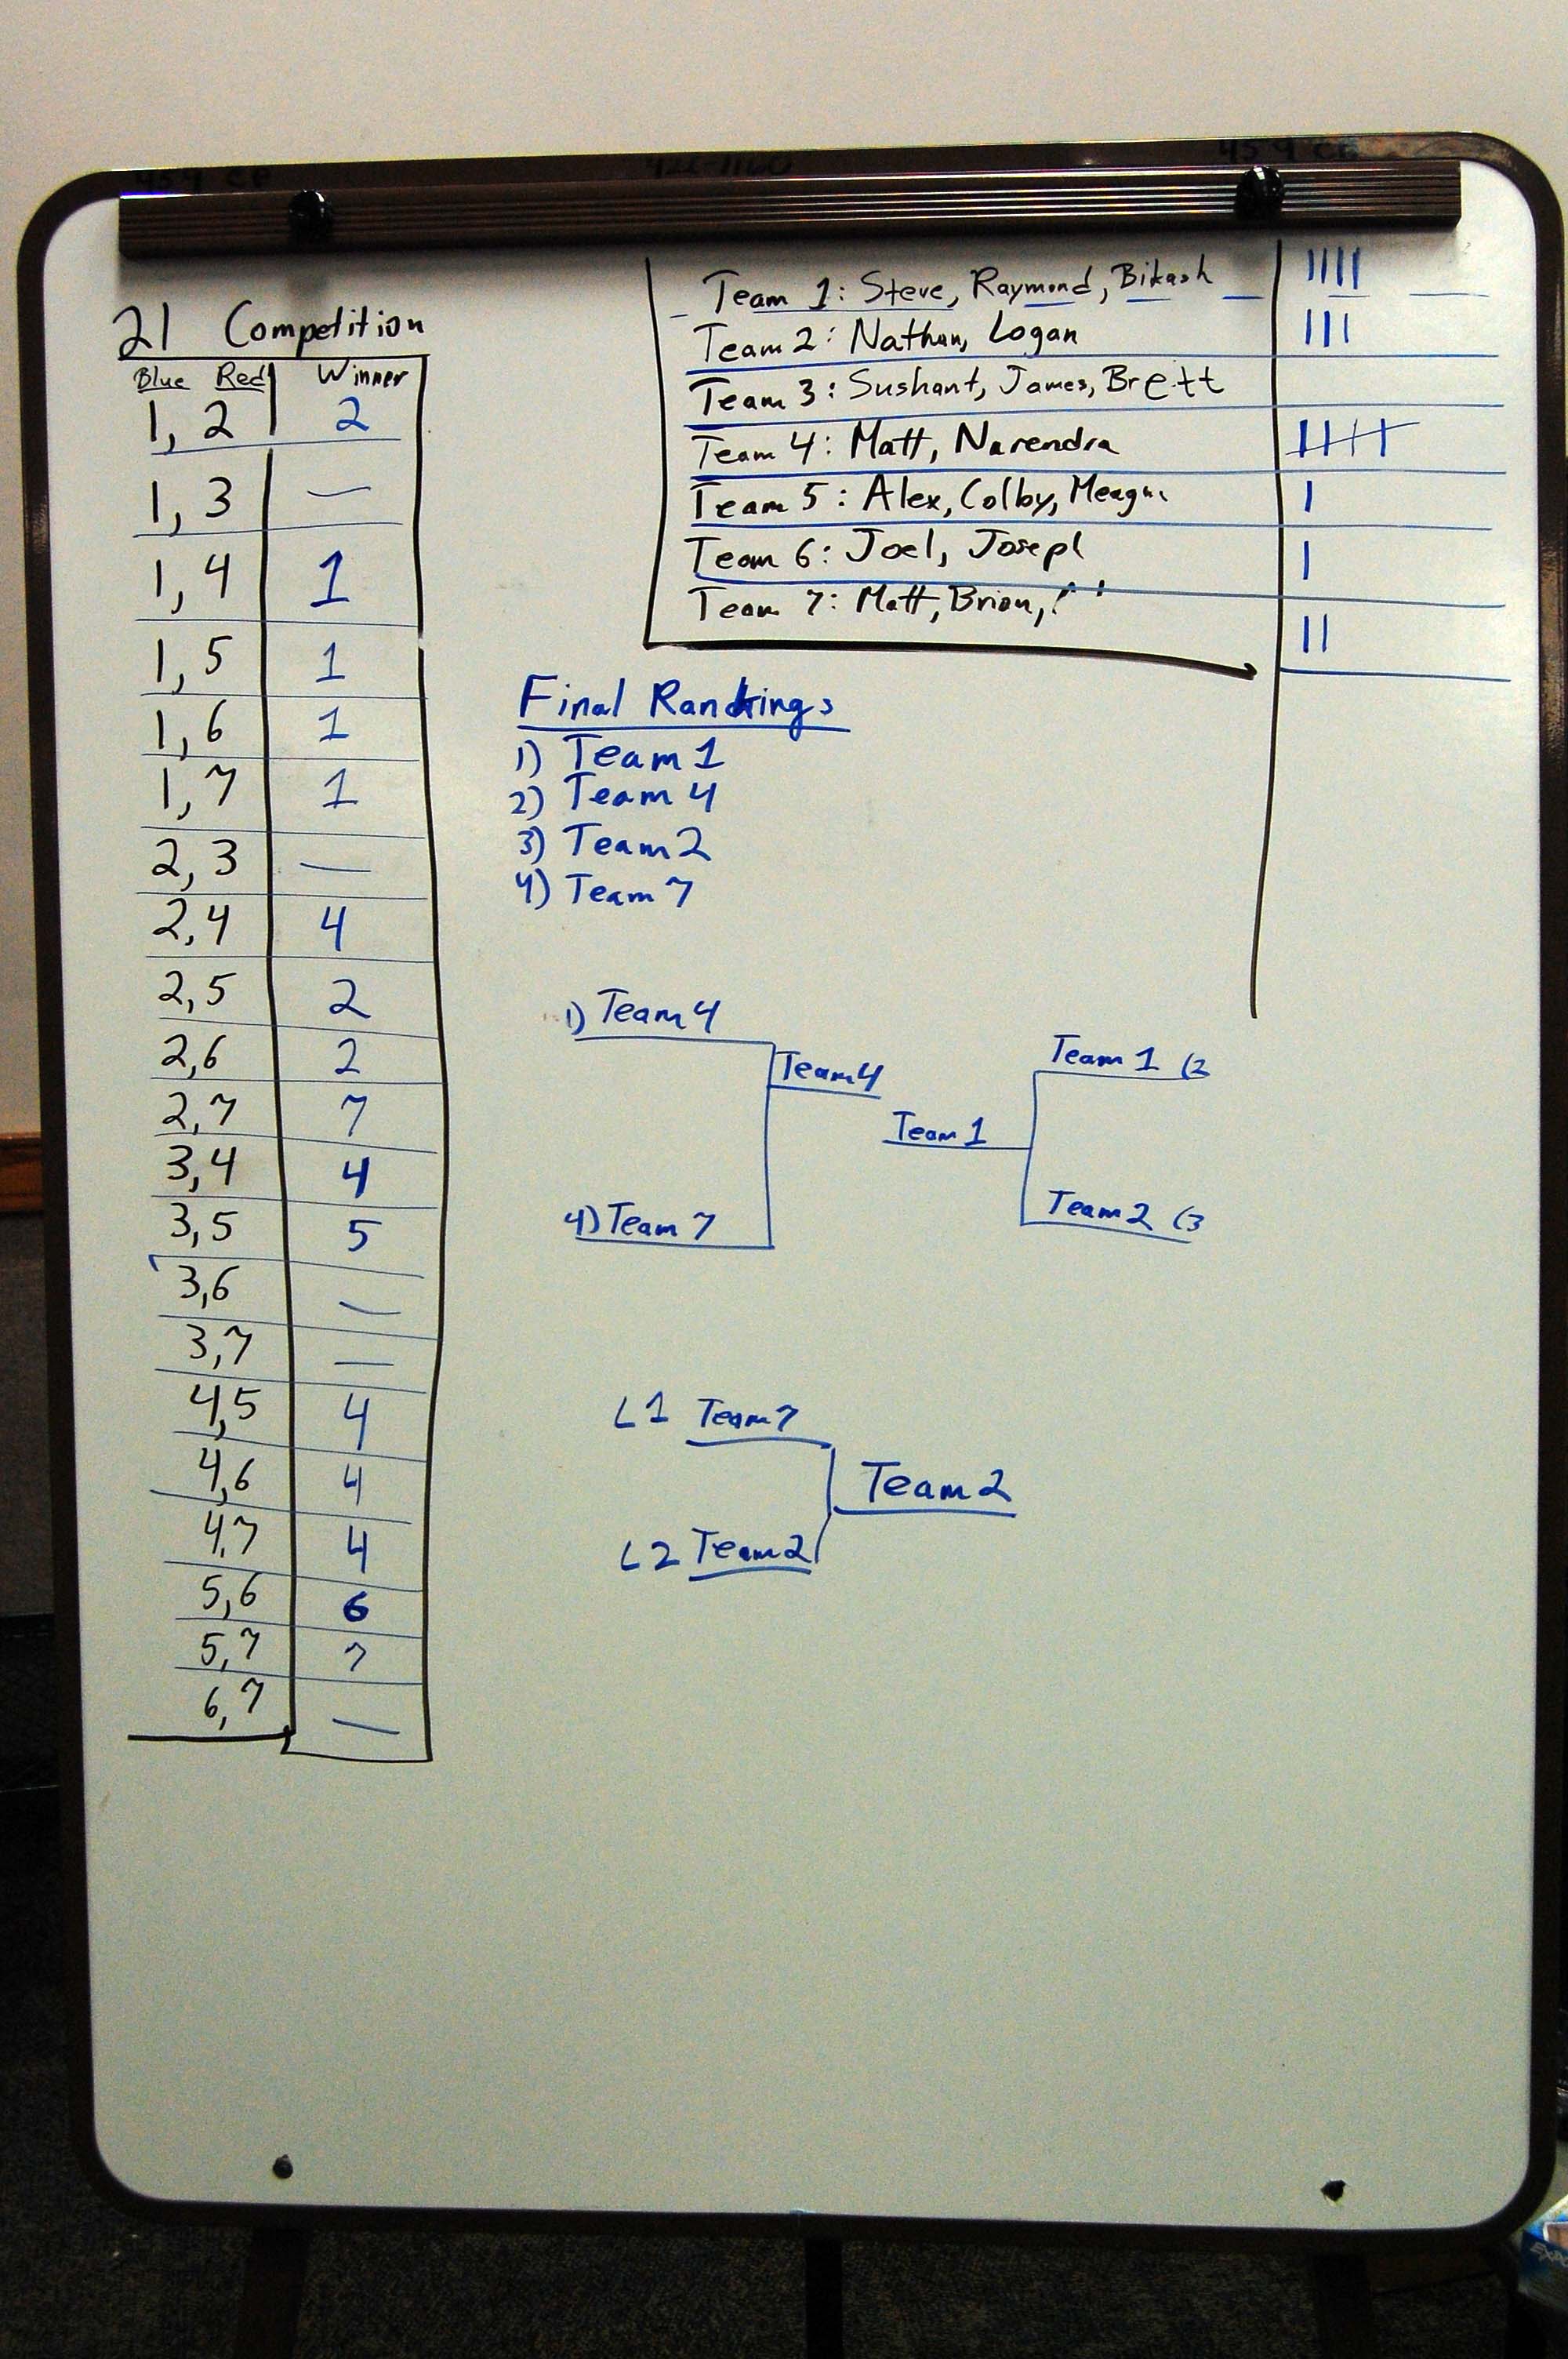 21 Competition
Blue Red Winner
1, 2 2
1, 3 —
1, 4 1
1, 5 1
1, 6 1
1, 7 1
2, 3 —
2, 4 4
2, 5 2
2, 6 2
2, 7 7
3, 4 4
3, 5 5
3, 6 —
3, 7 —
4, 5 4
4, 6 4
4, 7 4
5, 6 6
5, 7 7
6, 7 —
Team 1: Steve, Raymond, Bikash
Team 2: Nathan, Logan
Team 3: Sushant, James, Brett
Team 4: Matt, Narendra
Team 5: Alex, Colby,
Team 6: Joel, Joseph
Team 7: Matt, Brian,
Final Rankings
1) Team 1
2) Team 4
3) Team 2
4) Team 7
1) Team 4
Team 4
4) Team 7
Team 1 (2
Team 1
Team 2 (3
L1 Team 7
Team 2
L2 Team 2